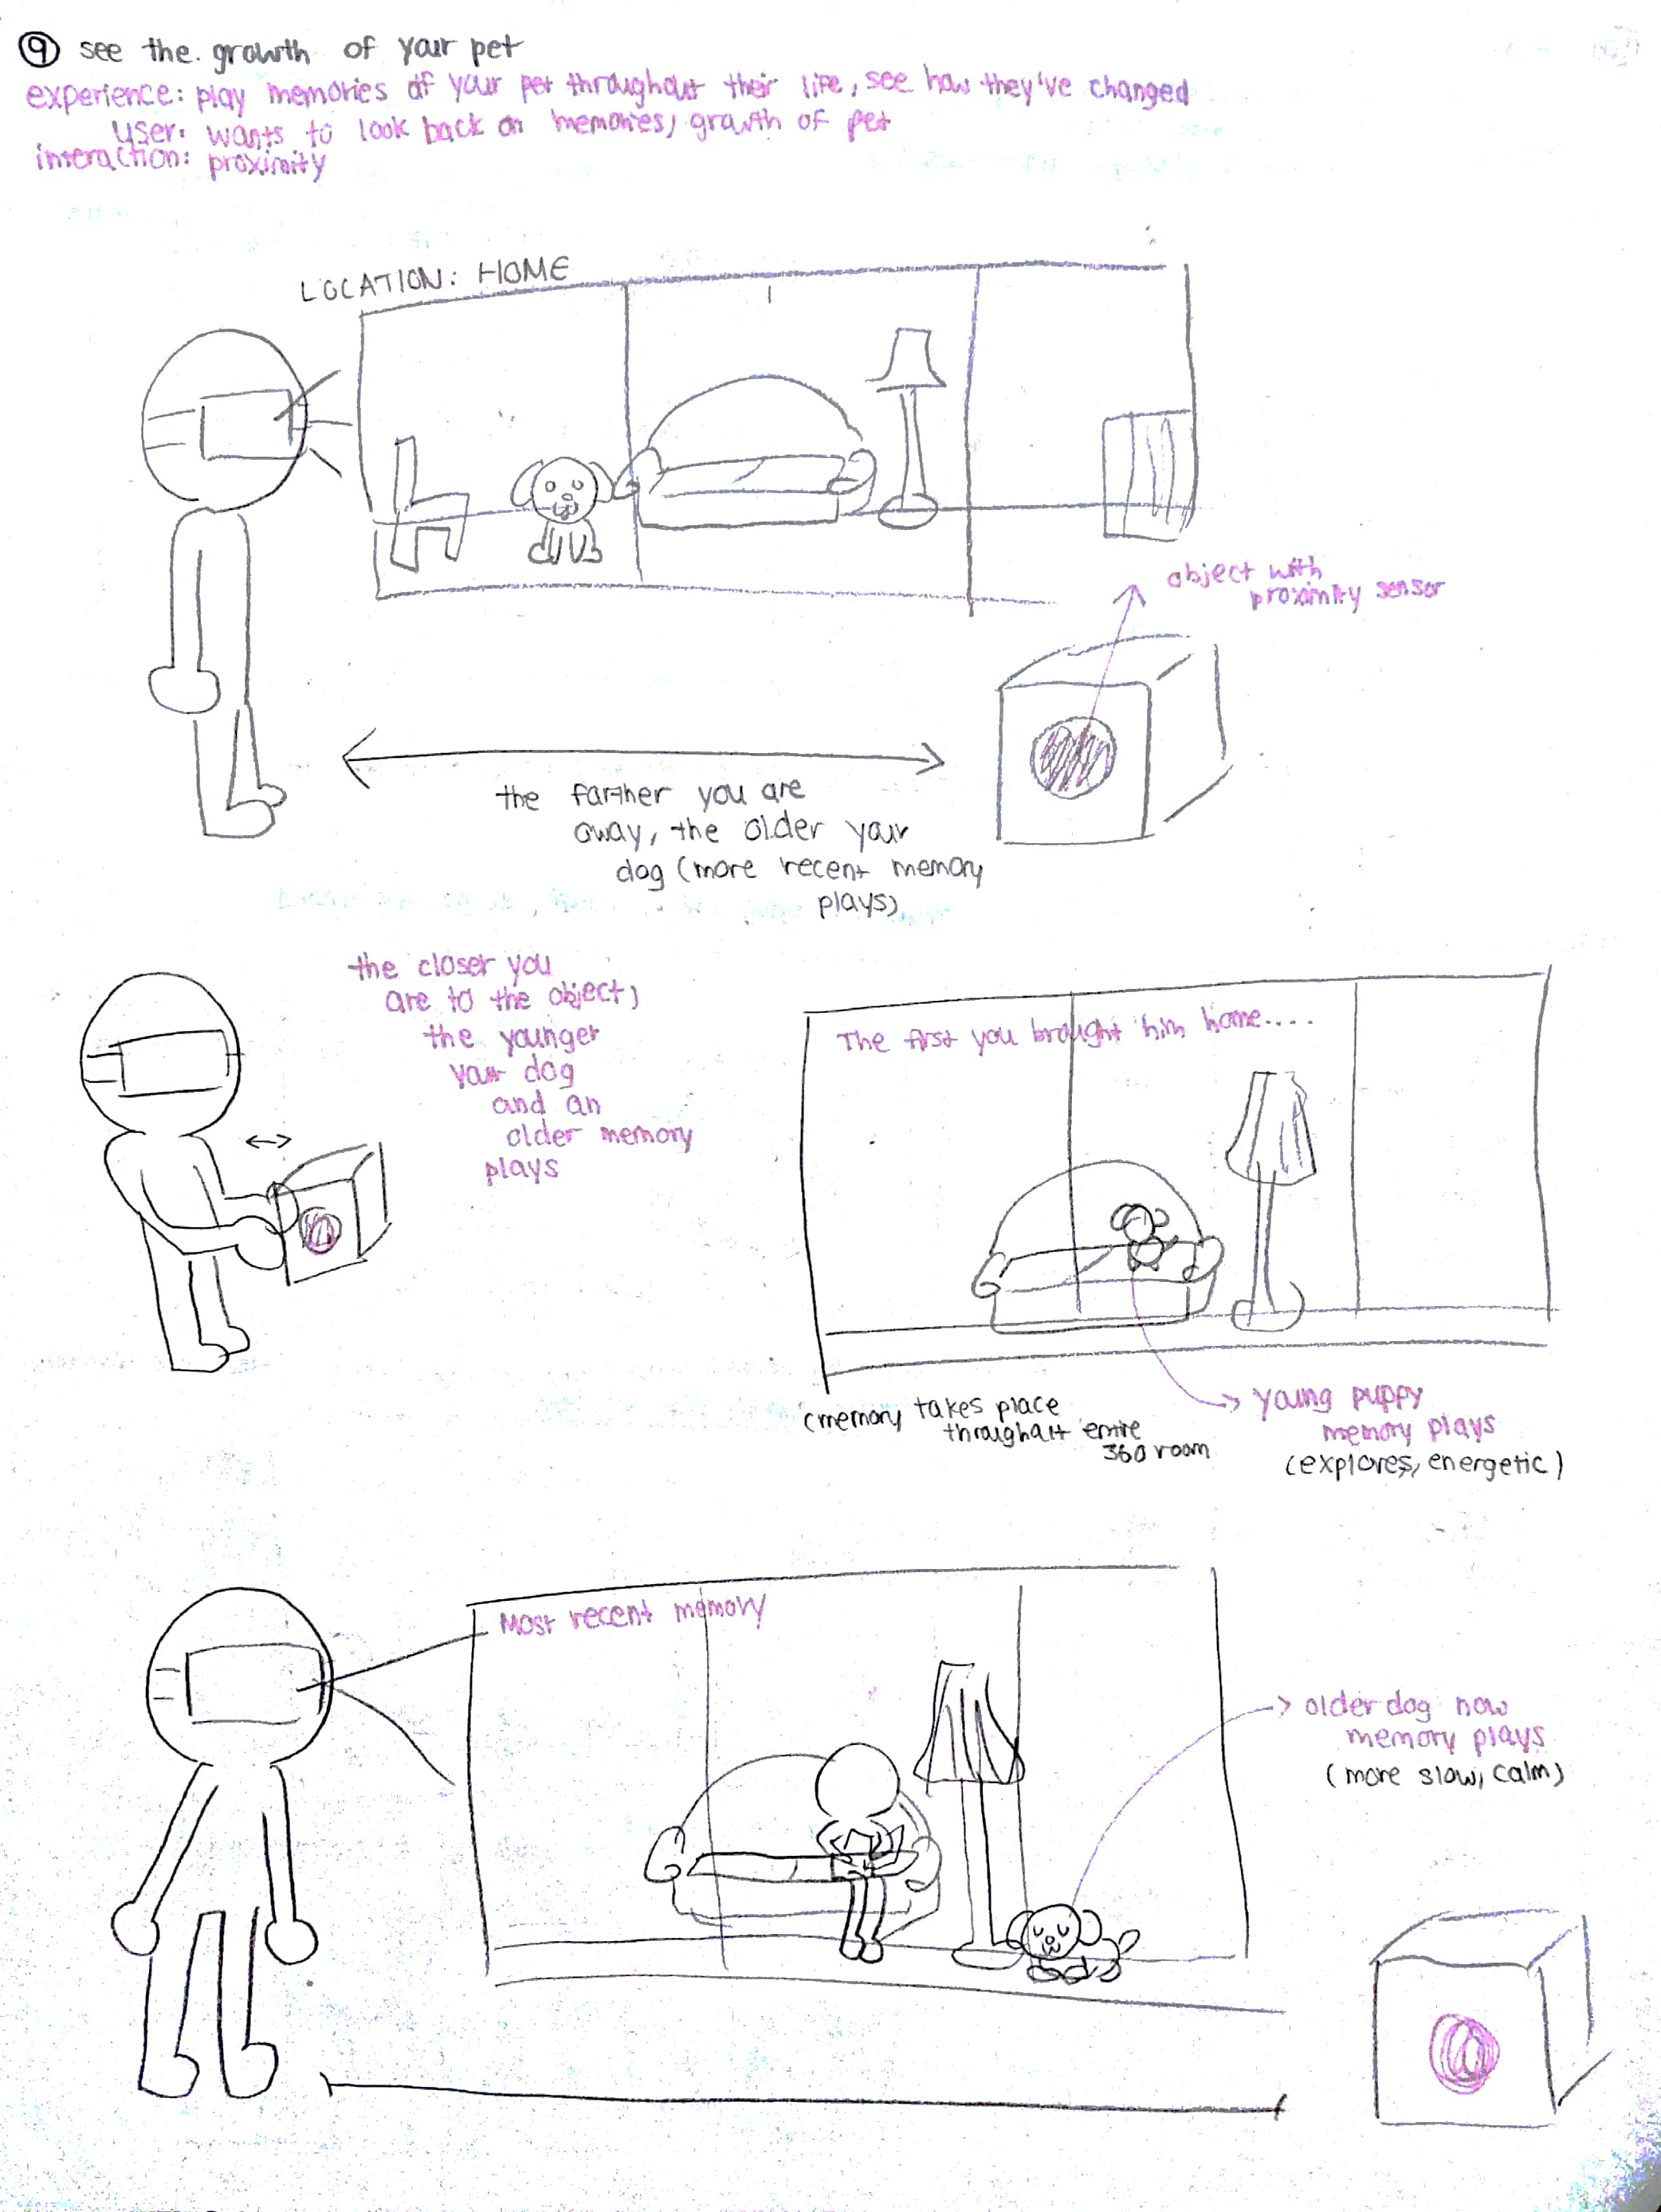 9 see the growth of your pet
experience: play memories of your pet throughout their life, see how they've changed
user: wants to look back on memories, growth of pet
interaction: proximity
LOCATION: HOME
object with
proximity sensor
the farther you are
away, the older your
dog (more recent memory
plays)
the closer you
are to the object,
the younger
your dog
and an
older memory
plays
The first you brought him home.....
(memory takes place
throughout entire
360 room
young puppy
memory plays
(explores, energetic)
Most recent memory
older dog now
memory plays
(more slow, calm)